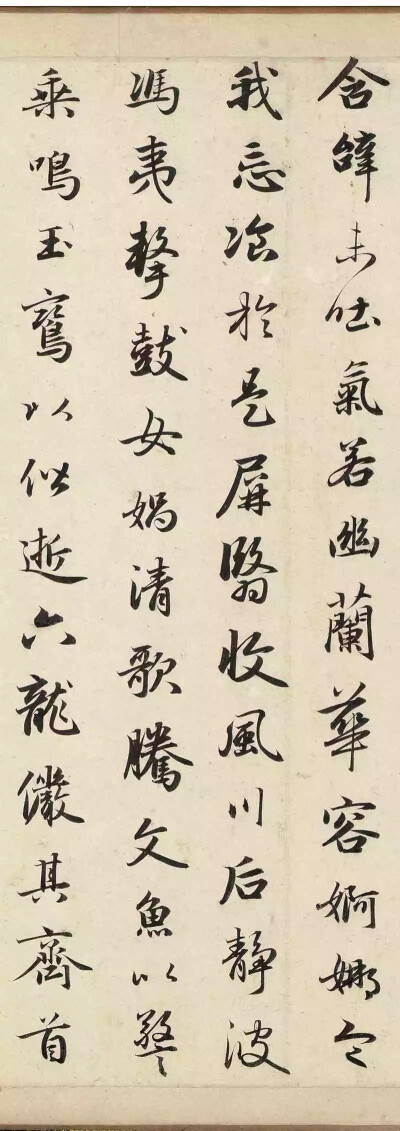 含辭未吐氣若幽蘭華容婀娜令
我忘飡於是屏翳收風川后靜波
馮夷擊鼓女媧清歌騰文魚以警
乘鳴玉鸞以偕逝六龍儼其齊首